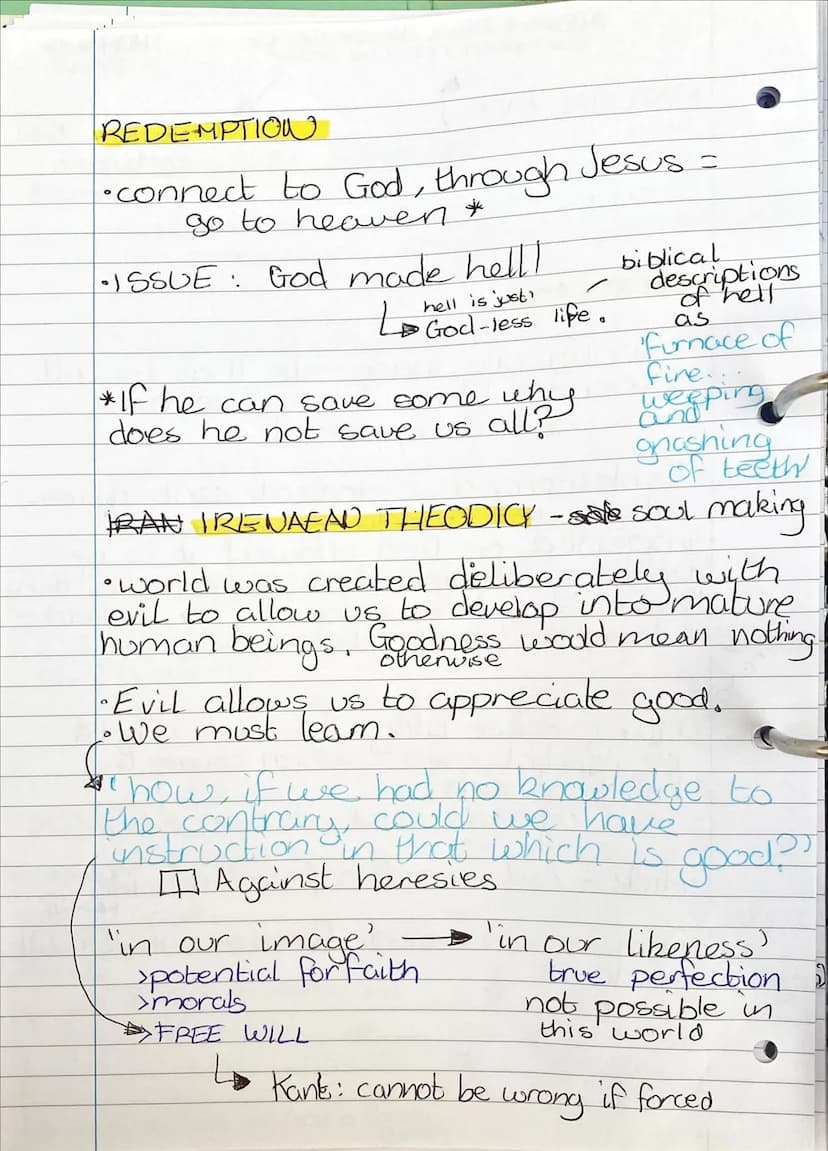 REDEMPTION
•connect to God, through Jesus =
go to heaven *
•ISSUE: God made hell!
hell is just
God-less life.
biblical
descriptions
of hell
as
'furnace of
fire...
weeping
and
gnashing
of teeth'
*If he can save some why
does he not save us all?
IRAN IRENAEAN THEODICY - soul making
•world was created deliberately with
evil to allow us to develop into mature
human beings. Goodness would mean nothing
otherwise
•Evil allows us to appreciate good.
•We must learn.
'how, if we had no knowledge to
the contrary, could we have
instruction in that which is good?'
Against heresies
'in our image' → 'in our likeness'
>potential for faith
>morals
>FREE WILL
true perfection
not possible in
this world
Kant: cannot be wrong if forced